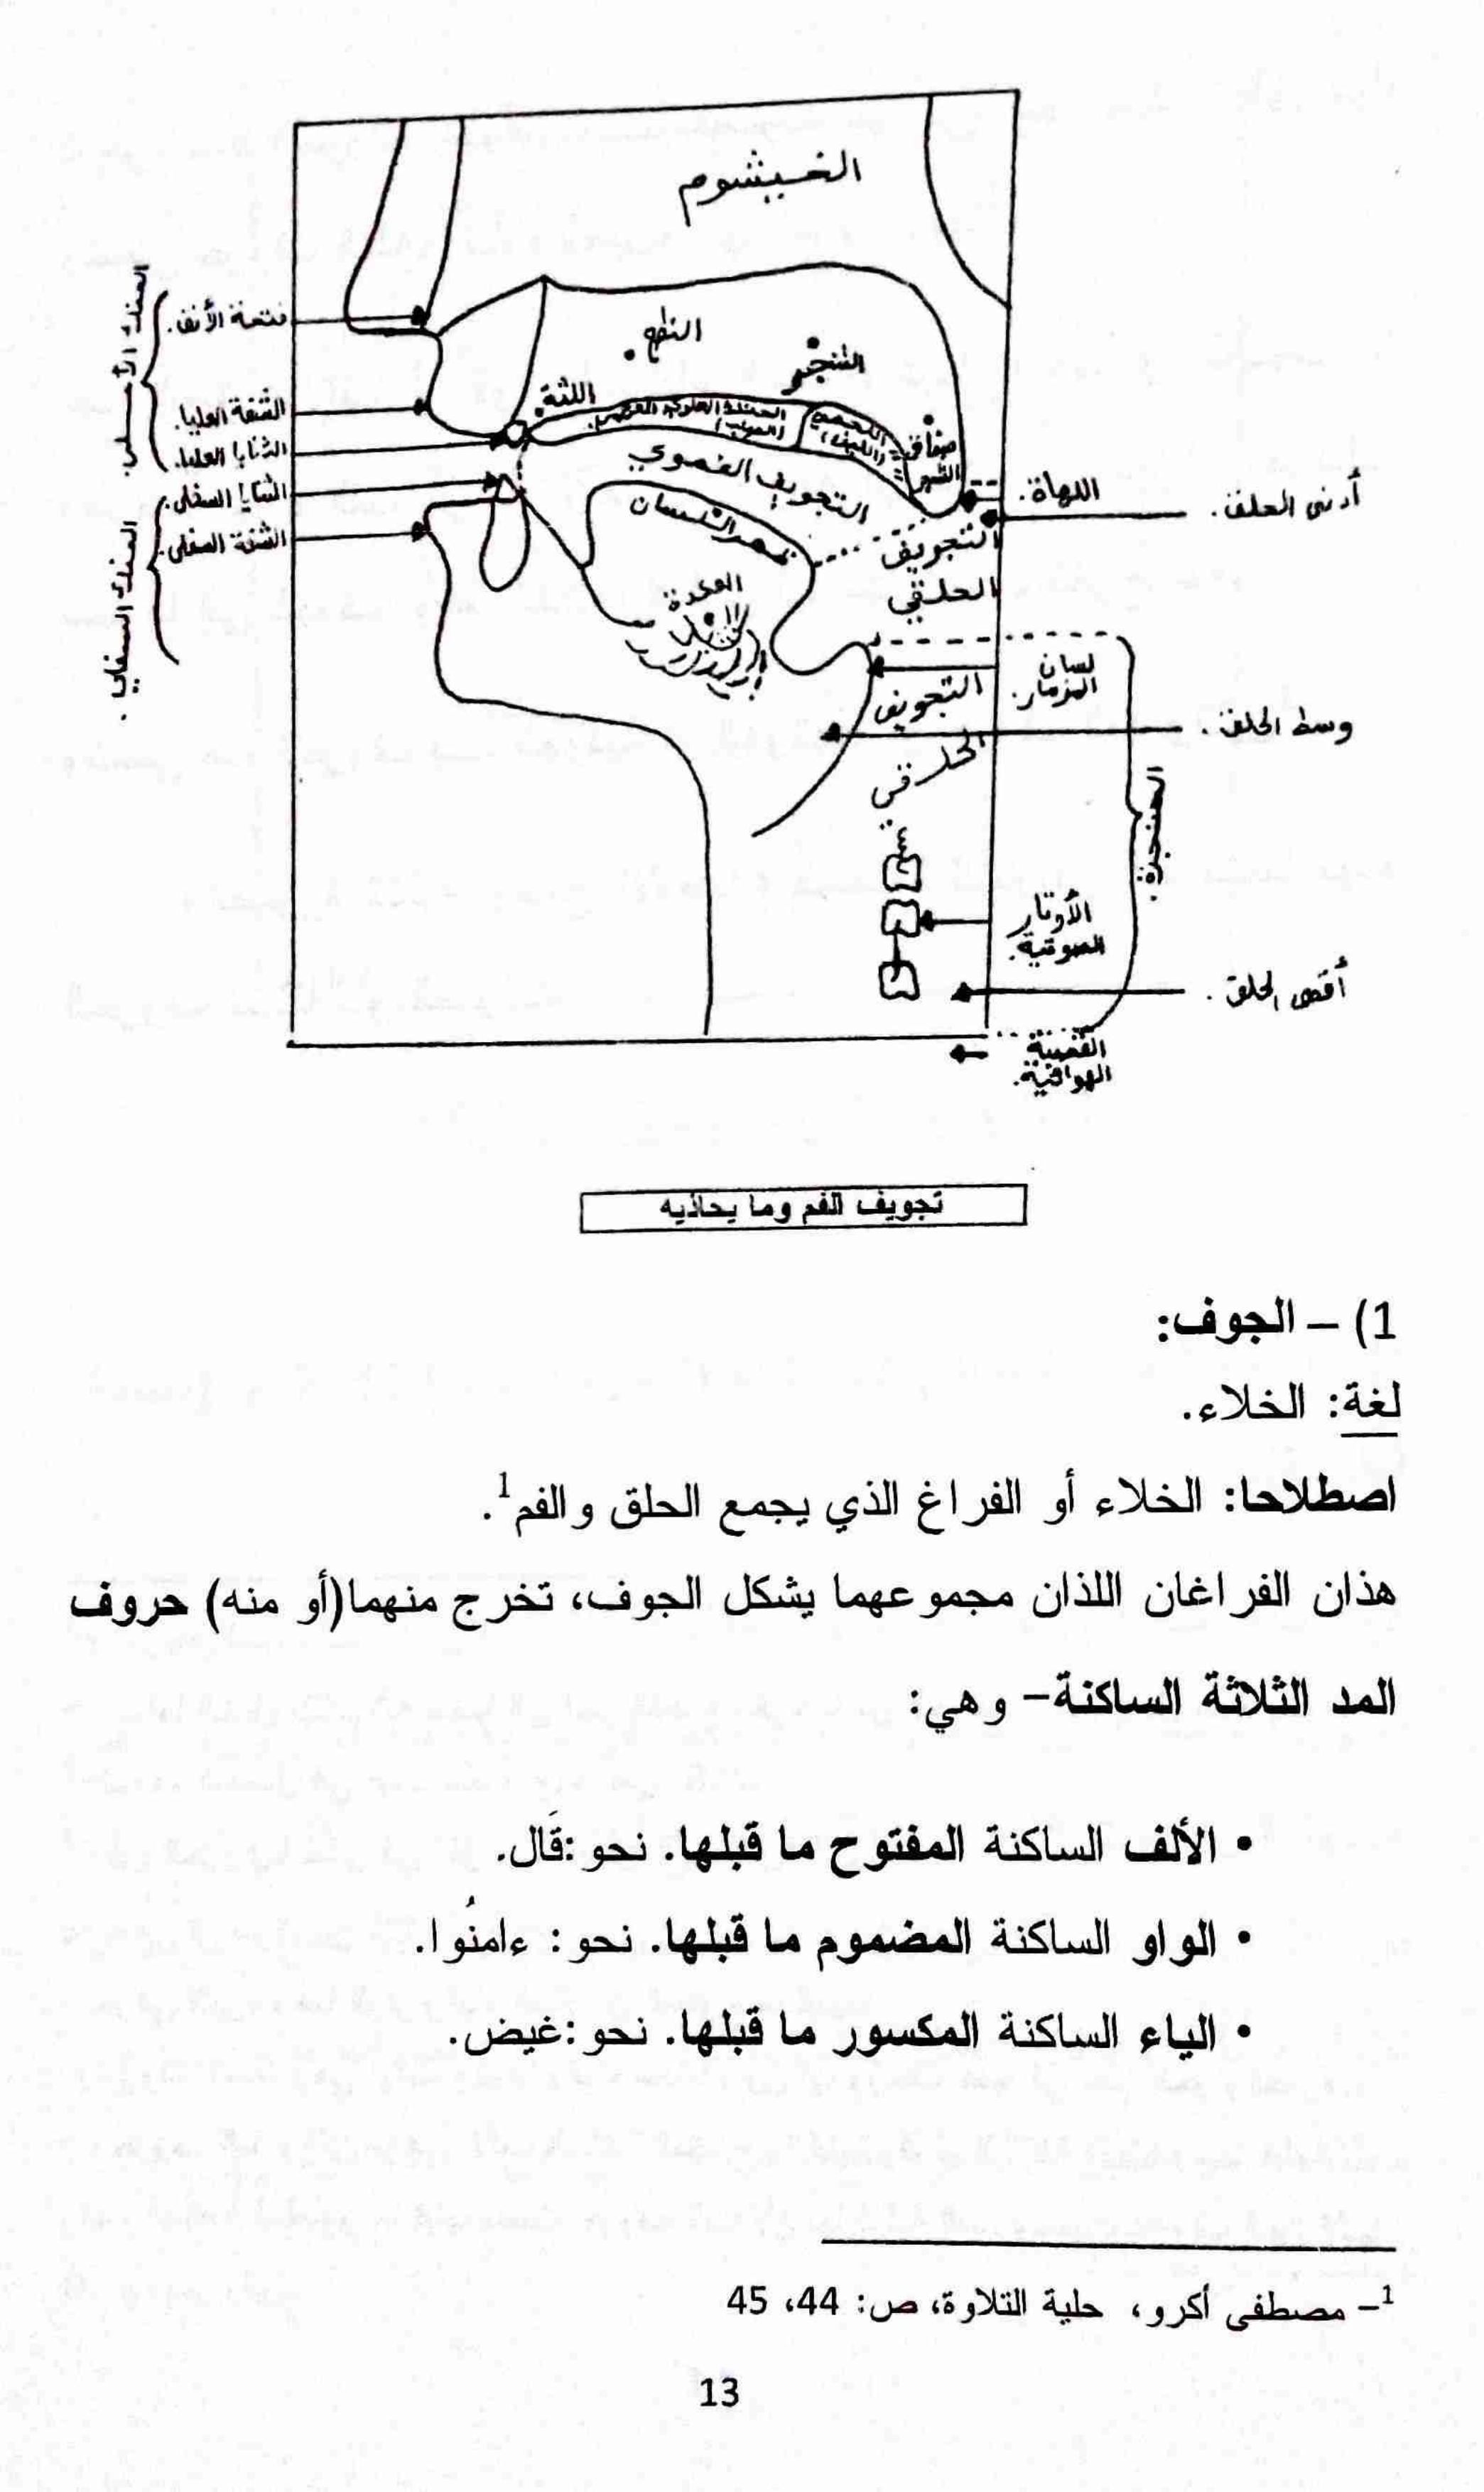 الخيشوم
فتحة الأنف.
الشفة العليا.
الثنايا العليا.
الثنايا السفلى.
الشفة السفلى.
الحنك الأعلى.
الحنك السفلي.
النطع
الشجر
اللثة.
التجويف الفموي
ظهر اللسان
العكدة
اللهاة.
أدنى الحلق.
التجويف
الحلقي
لسان
المزمار.
التجويف
الحلقي
وسط الحلق.
الحنجرة.
الأوتار
الصوتية.
أقصى الحلق.
القصبة
الهوائية.
تجويف الفم وما يحاذيه
1) – الجوف:
لغة: الخلاء.
اصطلاحا: الخلاء أو الفراغ الذي يجمع الحلق والفم1.
هذان الفراغان اللذان مجموعهما يشكل الجوف، تخرج منهما(أو منه) حروف
المد الثلاثة الساكنة– وهي:
• الألف الساكنة المفتوح ما قبلها. نحو:قَال.
• الواو الساكنة المضموم ما قبلها. نحو: ءامنُوا.
• الياء الساكنة المكسور ما قبلها. نحو:غيض.
1– مصطفى أكرو، حلية التلاوة، ص: 44، 45
13